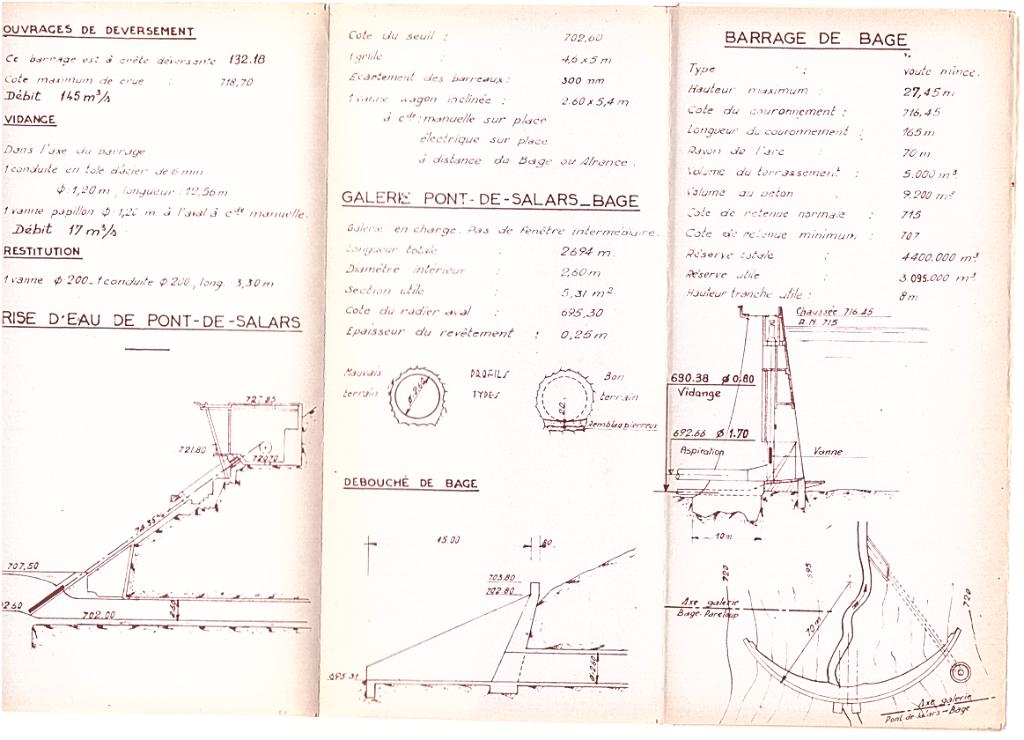 OUVRAGES DE DEVERSEMENT
Ce barrage est à crête déversante 132.18
Cote maximum de crue : 718,70
Débit 145 m³/s
VIDANGE
Dans l'axe du barrage
1 conduite en tole d'acier de 6 mm
ϕ 1,20 m, longueur : 12,56 m
1 vanne papillon ϕ 1,20 m à l'aval à cde manuelle.
Débit 17 m³/s
RESTITUTION
1 vanne ϕ 200_1 conduite ϕ 200, long. 3,30 m
RISE D'EAU DE PONT-DE-SALARS
721.80
707,50
702.00
2.60
Cote du seuil : 702.60
1 grille 4,6 x 5 m
Ecartement des barreaux : 300 mm
1 vanne wagon inclinée : 2.60 x 5,4 m
à cde : manuelle sur place
électrique sur place
à distance du Bage ou Alrance.
GALERIE PONT-DE-SALARS_BAGE
Galerie en charge. Pas de fenêtre intermédiaire.
Longueur totale : 2694 m.
Diamètre intérieur : 2,60 m
Section utile : 5,31 m²
Cote du radier aval : 695,30
Epaisseur du revêtement : 0,25 m
Mauvais terrain
PROFILS TYPES
Bon terrain
Remblai pierreux
DEBOUCHÉ DE BAGE
15.00
80
703.80
702.80
695.31
ϕ 2.60
BARRAGE DE BAGE
Type : voute mince.
Hauteur maximum : 27,45 m
Cote du couronnement : 716,45
Longueur du couronnement : 165 m
Rayon de l'arc : 70 m
Volume du terrassement : 5.000 m³
Volume du béton : 9.200 m³
Cote de retenue normale : 715
Cote de retenue minimum : 707
Réserve totale : 4400.000 m³
Réserve utile : 3 095.000 m³
Hauteur tranche utile : 8 m
Chaussée 716.45
R.N 715
690.38 ϕ 0.80
Vidange
692.66 ϕ 1.70
Aspiration
Vanne
10 m
720
695
720
Axe galerie
Bage-Pareloup
70 m
Axe galerie
Pont de Salars - Bage